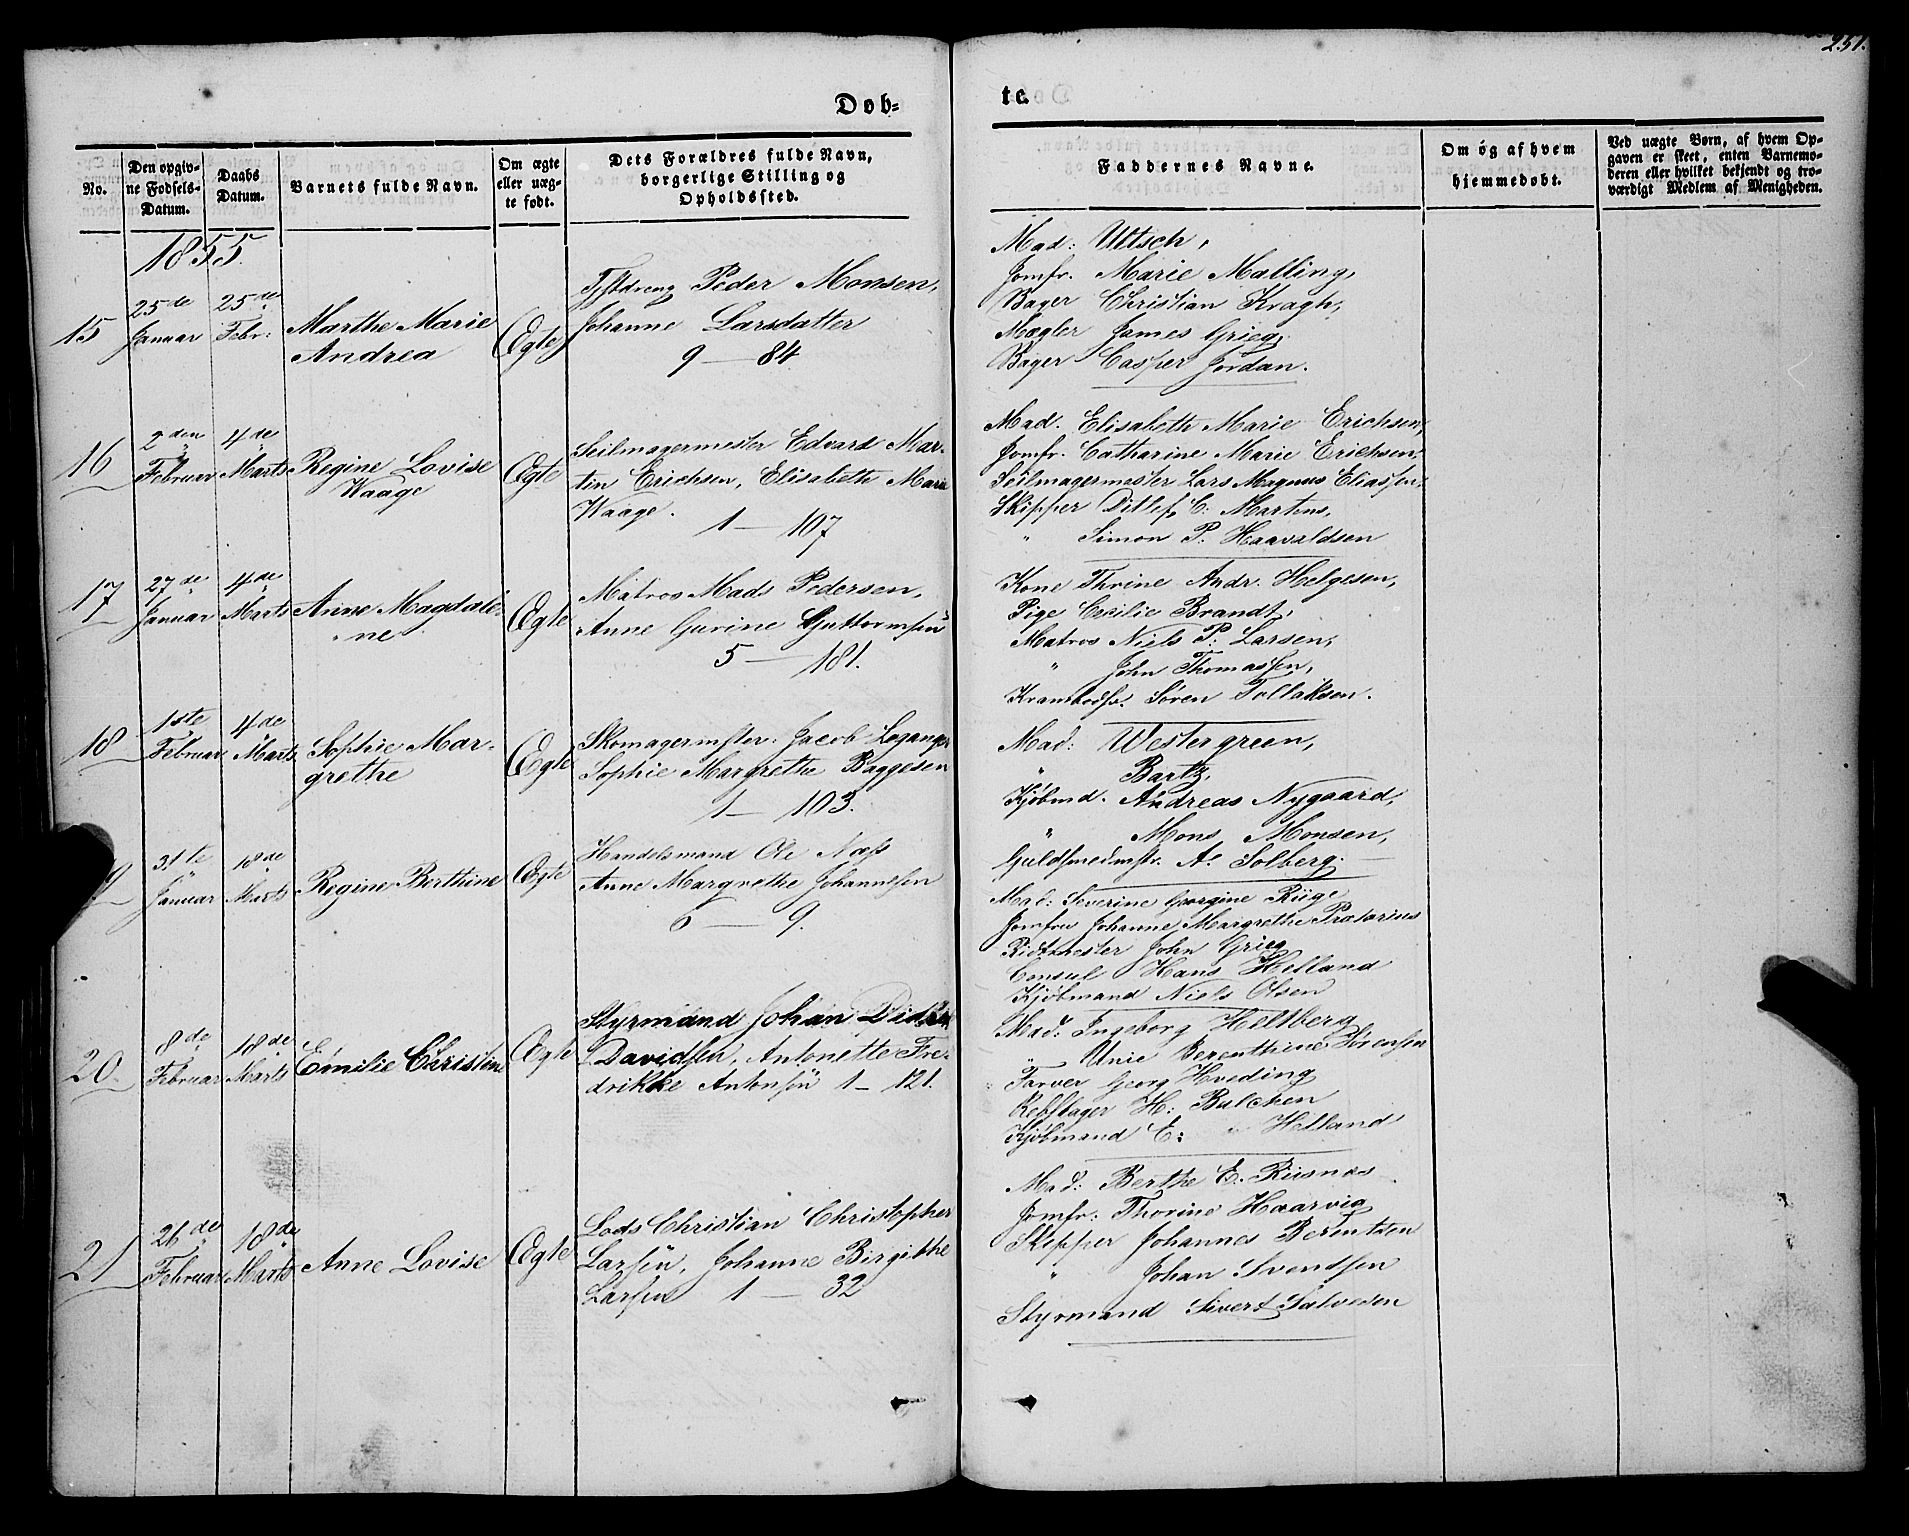 251.
Døb-
te.
No.
Den opgiv-
ne Fødsels-
Datum.
Daabs
Datum.
Barnets fulde Navn.
Om ægte
eller uæg-
te født.
Dets Forældres fulde Navn,
borgerlige Stilling og
Opholdssted.
Faddernes Navne.
Om og af hvem
hjemmedøbt.
Ved uægte Børn, af hvem Op-
gaven er skeet, enten Barnemo-
deren eller hvilket bekjendt og tro-
værdigt Medlem af Menigheden.
1855.
15
25de
Januar
25de
Febr:
Marthe Marie
Andrea
Ægte
Peder Monsen,
Johanne Larsdatter
9 — 84
Mad: Uttsch,
Jomfr. Marie Malling,
Bager Christian Kragh,
Mægler James Grieg,
Bager Casper Jordan.
16
2den
Februar
4de
Marts
Regine Lovise
Waage
Ægte
Seilmagermester Edvard Mar-
tin Erichsen, Elisabeth Marie
Waage.
1 — 107
Mad. Elisabeth Marie Erichsen,
Jomfr. Catharine Marie Erichsen,
Seilmagermester Lars Magnus Eliassen,
Skipper Ditlef C: Martens,
" Simon P. Haavaldsen
17
27de
Januar
4de
Marts
Anne Magdale-
ne
Ægte
Matros Mads Pedersen,
Anne Gurine Guttormsen
5 — 181.
Kone Thrine Andr. Helgesen,
Pige Cecilie Brandt,
Matros Niels P. Larsen,
" John Thomassen,
Krambodsv. Søren Tollaksen.
18
1ste
Februar
4de
Marts
Sophie Mar-
grethe
Ægte
Skomagermster. Jacob Leganger
Sophie Margrethe Baggesen
1 — 103.
Mad: Westergreen,
" Bartz,
Kjøbmd. Andreas Nygaard,
" Mons Monsen,
Guldsmedmstr. A. Solberg.
9
31te
Januar
18de
Marts
Regine Berthine
Ægte
Handelsmand Ole Næss
Anne Margrethe Johannesen
6 — 9.
Mad: Severine Georgine Riige
Jomfru Johanne Margrethe Prætorius
Ridtmester John Grieg
Consul Hans Helland
Kjøbmand Niels Olsen
20
8de
Februar
18de
Marts
Emilie Christine
Ægte
Styrmand Johan Didrik
Davidsen, Antonette Fre-
drikke Antonsen 1 — 121.
Mad: Ingeborg Heltberg
" Unie Berenthine Sørensen
Farver Georg Hveding
Rebslager H: Balchen
Kjøbmand E: Helland
21
26de
Februar
18de
Marts
Anne Lovise
Ægte
Lods Christian Christopher
Larsen, Johanne Birgithe
Larsen 1 — 32
Mad: Berthe E. Riisnæs
Jomfr: Thorine Haarvig
Skipper Johannes Berentzen
" Johan Svendsen
Styrmand Sivert Salvesen